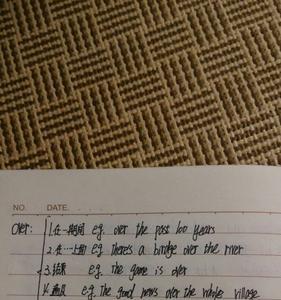 NO. DATE.
over: 1.在一期间 eg. over the past 100 years
2.在…上面 eg There's a bridge over the river
3.结束 eg. The game is over
4.遍及 eg. The good news over the whole village